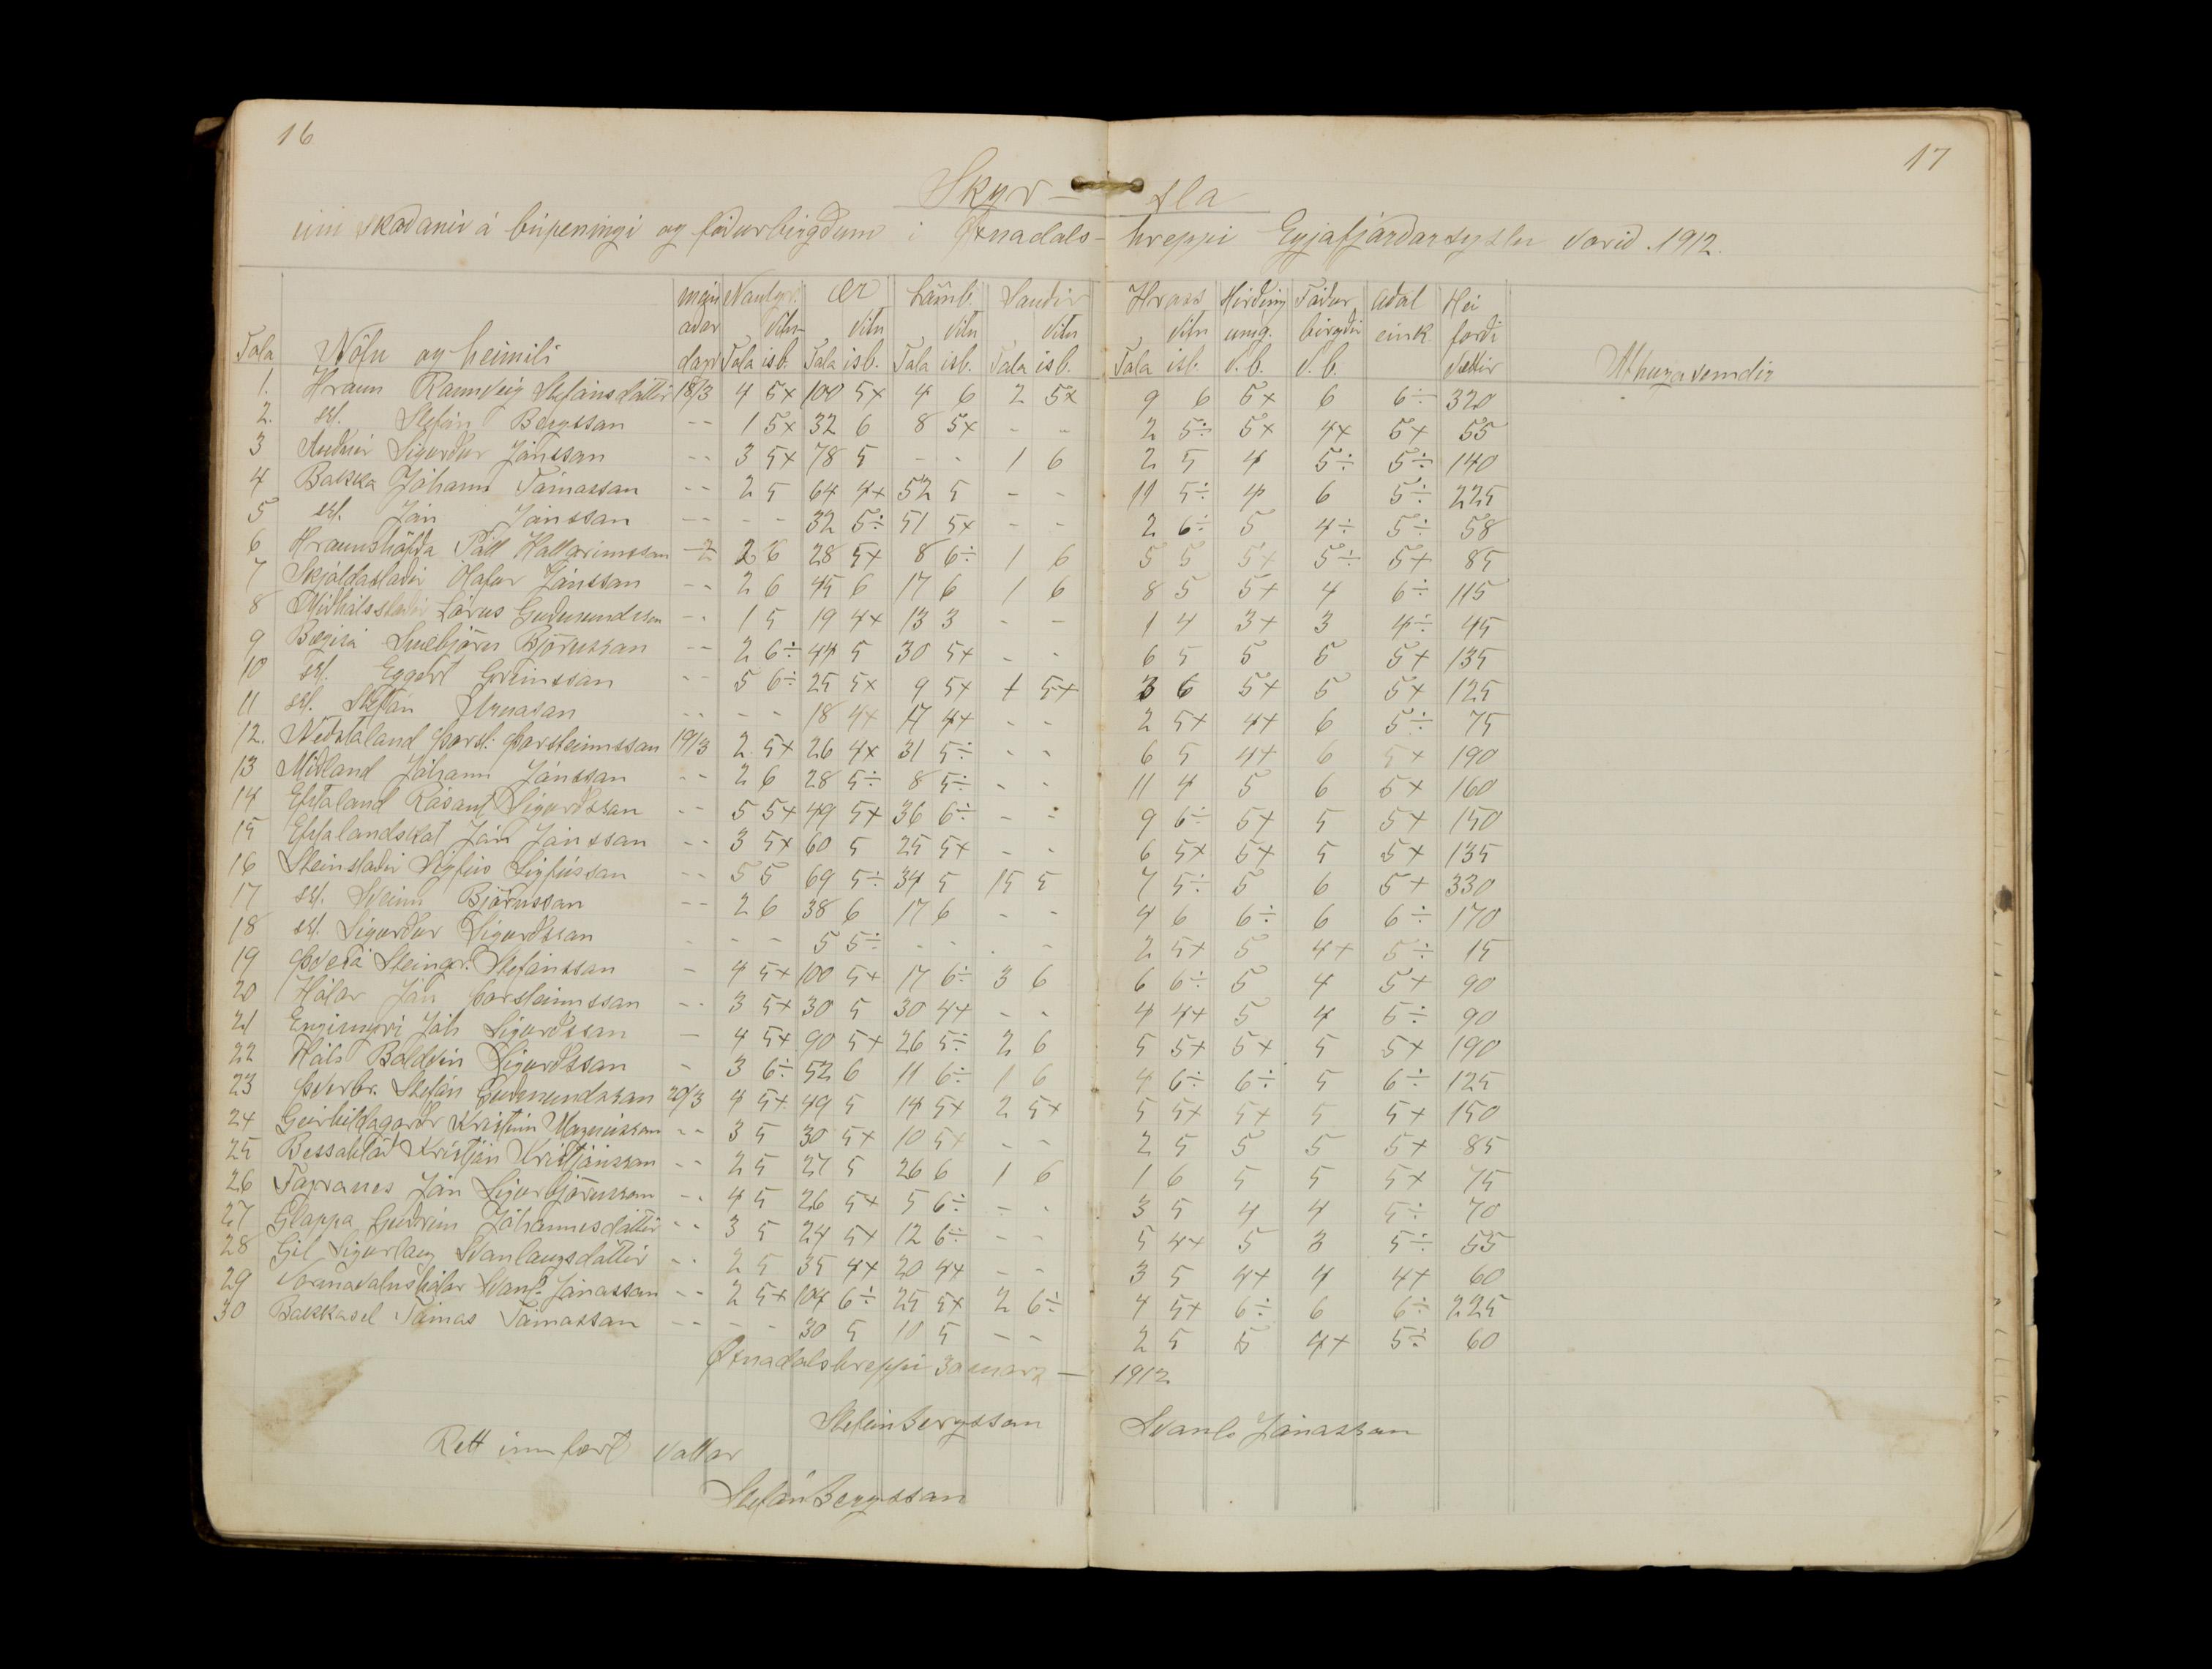 16
17
Skyr- sla
um skoðanir á búpeningi og fóðurbirgðum í Øxnadals- hreppi Eyjafjarðarsyslu vorið .1912.
Tala Nöfn og heimili mánaðar dagr Nautgr. Tala vitn isb. Ær Tala vitn isb. Lömb. Tala vitn isb. Sauðir Tala vitn isb. Hross Tala vitn isb. Hirðing umg. v.b. Fóður birgðir v.b. aðal eink. Hei forði vættir Athugasemdir
1. Hraun Rannveig Stefánsdóttir 18/3 4 5+ 100 5+ 4 6 2 5+ 9 6 5+ 6 6÷ 320
2. sst. Stefán Bergsson -- 1 5+ 32 6 8 5+ - - 2 5÷ 5+ 4+ 5+ 55
3 Auðnir Sigurður Jónsson -- 3 5+ 78 5 - - 1 6 2 5 4 5÷ 5÷ 140
4 Bakka Jóhann Tómasson -- 2 5 64 4+ 52 5 - - 11 5÷ 4 6 5÷ 225
5 sst. Jón Jónsson -- - - 32 5÷ 51 5+ - - 2 6÷ 5 4÷ 5÷ 58
6 Hraunshöfða Páll Hallgrímsson -- 2 6 28 5+ 8 6÷ 1 6 5 5 5+ 5÷ 5+ 85
7 Skjaldastaðir Ólafur Jónsson -- 2 6 45 6 17 6 1 6 8 5 5+ 4 6÷ 115
8 Miðhálsstaðir Lárus Guðmundsson -- 1 5 19 4+ 13 3 - - 1 4 3+ 3 4÷ 45
9 Bægisá Snæbjörn Björnsson -- 2 6÷ 44 5 30 5+ - - 6 5 5 5 5+ 135
10 sst. Eggert Grímsson -- 5 6÷ 25 5+ 9 5+ 1 5+ 3 6 5+ 5 5+ 125
11 sst. Stefán Árnason -- - - 18 4+ 17 4+ - - 2 5+ 4+ 6 5÷ 75
12. Neðstaland Þorst. Þorsteinsson 19/3 2 5+ 26 4+ 31 5÷ - - 6 5 4+ 6 5+ 190
13 Miðland Jóhann Jónsson -- 2 6 28 5÷ 8 5÷ - - 11 4 5 6 5+ 160
14 Efstaland Rósant Sigurðsson -- 5 5+ 49 5+ 36 6÷ - - 9 6÷ 5+ 5 5+ 150
15 Efstalandskot Jón Jónsson -- 3 5+ 60 5 25 5+ - - 6 5+ 5+ 5 5+ 135
16 Steinstaðir Sigfús Sigfússon -- 5 5 69 5÷ 34 5 15 5 7 5÷ 5 6 5+ 330
17 sst. Sveinn Björnsson -- 2 6 38 6 17 6 - - 4 6 6÷ 6 6÷ 170
18 sst. Sigurður Sigurðsson - - - 5 5÷ - - - - 2 5+ 5 4+ 5÷ 15
19 Þverá Steingr. Stefánsson - 4 5+ 100 5+ 17 6÷ 3 6 6 6÷ 5 4 5+ 90
20 Hólar Jón Þorsteinsson -- 3 5+ 30 5 30 4+ - - 4 4+ 5 4 5÷ 90
21 Engimýri Jóh Sigurðsson - 4 5+ 90 5+ 26 5÷ 2 6 5 5+ 5+ 5 5+ 190
22 Háls Baldvin Sigurðsson - 3 6÷ 52 6 11 6÷ 1 6 4 6÷ 6÷ 5 6÷ 125
23 Þverbr. Stefán Guðmundsson 20/3 4 5+ 49 5 14 5+ 2 5+ 5 5+ 5+ 5 5+ 150
24 Geirhildagarðr Kristinn Magnússon -- 3 5 30 5+ 10 5+ - - 2 5 5 5 5+ 85
25 Bessahlað Kristján Kristjánsson -- 2 5 27 5 26 6 1 6 1 6 5 5 5+ 75
26 Fagranes Jón Sigurbjörnsson -- 4 5 26 5+ 5 6÷ - - 3 5 4 4 5÷ 70
27 Gloppa Guðrún Jóhannesdóttir -- 3 5 24 5+ 12 6÷ - - 5 4+ 5 3 5÷ 55
28 Gil Sigurlaug Svanlaugsdóttir -- 2 5 35 4+ 20 4+ - - 3 5 4+ 4 4+ 60
29 Varmavatnshólar Svanl. Jónasson -- 2 5+ 104 6÷ 25 5+ 2 6÷ 4 5+ 6÷ 6 6÷ 225
30 Bakkasel Tómas Tómasson -- - - 30 5 10 5 - - 2 5 5 4+ 5÷ 60
Øxnadalshreppi 30 marz - 1912
Stefán Bergsson Svanl. Jónasson
Rétt innfært vottar
Stefán Bergsson